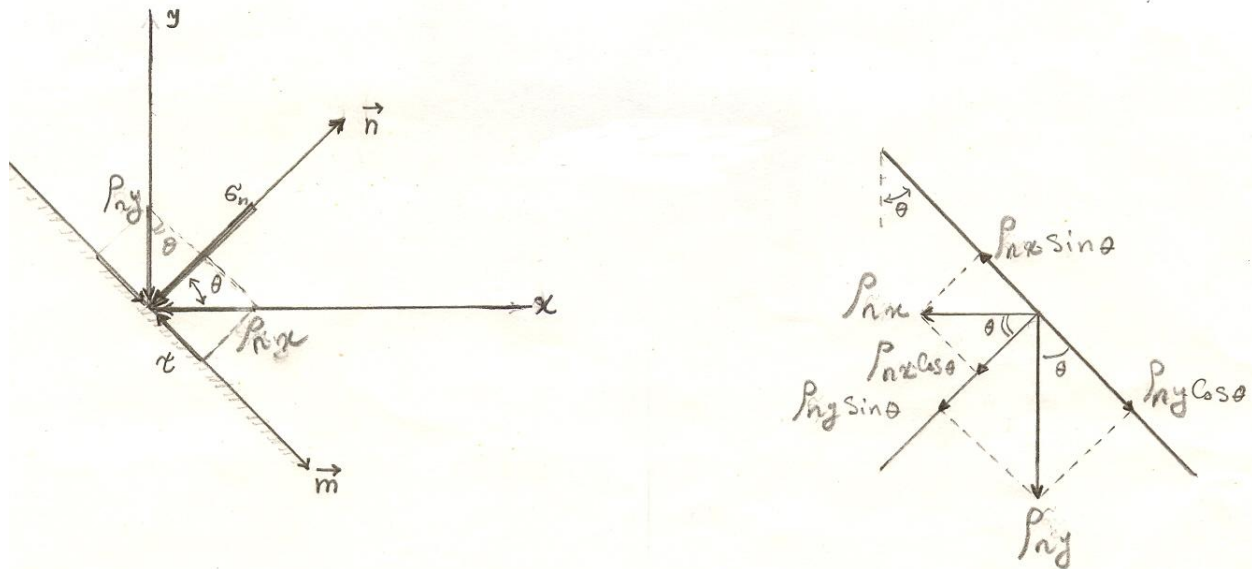 y
n
ρny
σn
θ
θ
x
ρnx
τ
m
θ
ρnx sinθ
ρnx
θ
ρnx cosθ
θ
ρny sinθ
ρny cosθ
ρny